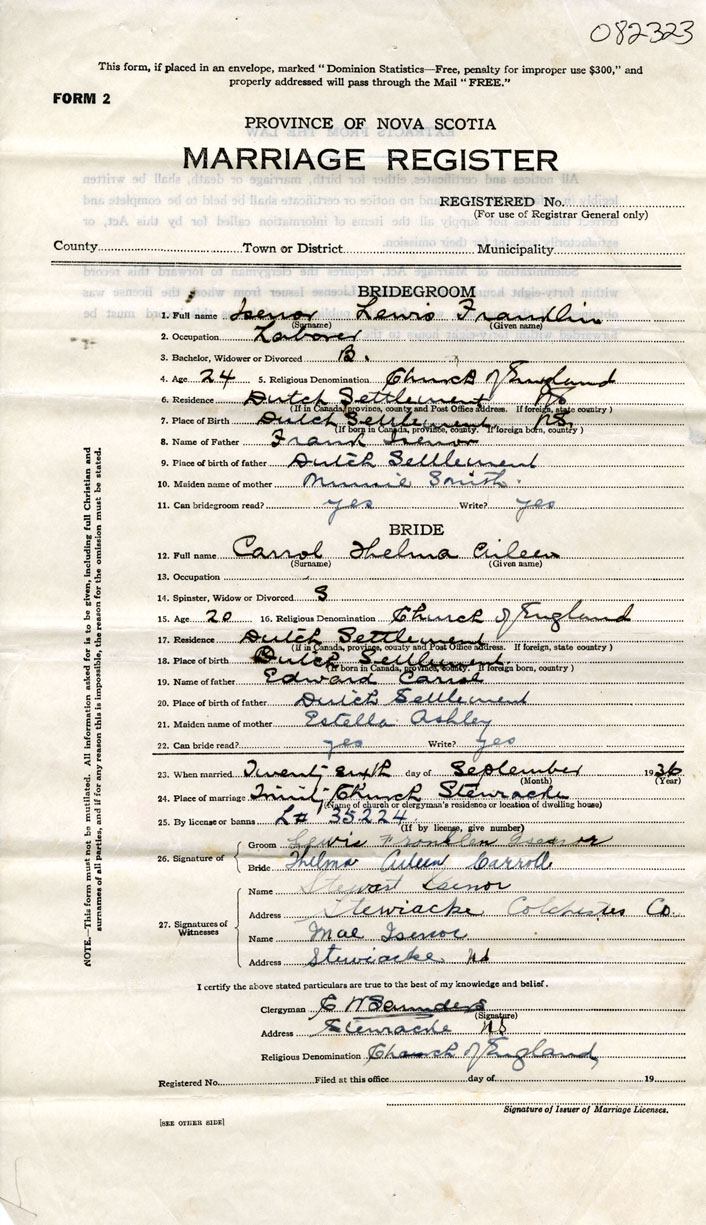 082323
This form, if placed in an envelope, marked "Dominion Statistics—Free, penalty for improper use $300," and
properly addressed will pass through the Mail "FREE."
FORM 2
PROVINCE OF NOVA SCOTIA
MARRIAGE REGISTER
REGISTERED No.
(For use of Registrar General only)
County Town or District Municipality
BRIDEGROOM
1. Full name Isenor Lewis Franklin
(Surname) (Given name)
2. Occupation Laborer
3. Bachelor, Widower or Divorced B.
4. Age 24 5. Religious Denomination Church of England
6. Residence Dutch Settlement NS
(If in Canada, province, county and Post Office address. If foreign, state country)
7. Place of Birth Dutch Settlement NS.
(If born in Canada, province, county. If foreign born, country)
8. Name of Father Frank Isenor
9. Place of birth of father Dutch Settlement
10. Maiden name of mother Minnie Smith.
11. Can bridegroom read? yes Write? yes
BRIDE
12. Full name Carrol Thelma Aileen
(Surname) (Given name)
13. Occupation
14. Spinster, Widow or Divorced S
15. Age 20 16. Religious Denomination Church of England
17. Residence Dutch Settlement
(If in Canada, province, county and Post Office address. If foreign, state country)
18. Place of birth Dutch Settlement.
(If born in Canada, province, county. If foreign born, country)
19. Name of father Edward Carrol
20. Place of birth of father Dutch Settlement
21. Maiden name of mother Estella Ashley
22. Can bride read? yes Write? yes
23. When married Twenty sixth day of September 1936
(Month) (Year)
24. Place of marriage Trinity Church Stewiacke
(Name of church or clergyman's residence or location of dwelling house)
25. By license or banns L# 35224
(If by license, give number)
26. Signature of
Groom Lewis Franklen Isenor
Bride Thelma Aileen Carroll
27. Signatures of Witnesses
Name Stewart Isenor
Address Stewiacke Colchester Co.
Name Mae Isenor
Address Stewiacke NS
I certify the above stated particulars are true to the best of my knowledge and belief.
Clergyman C W Saunders
(Signature)
Address Stewiacke NS
Religious Denomination Church of England
Registered No. Filed at this office day of 19
Signature of Issuer of Marriage Licenses.
[SEE OTHER SIDE]
NOTE.—This form must not be mutilated. All information asked for is to be given, including full Christian and
surnames of all parties, and if for any reason this is impossible, the reason for the omission must be stated.